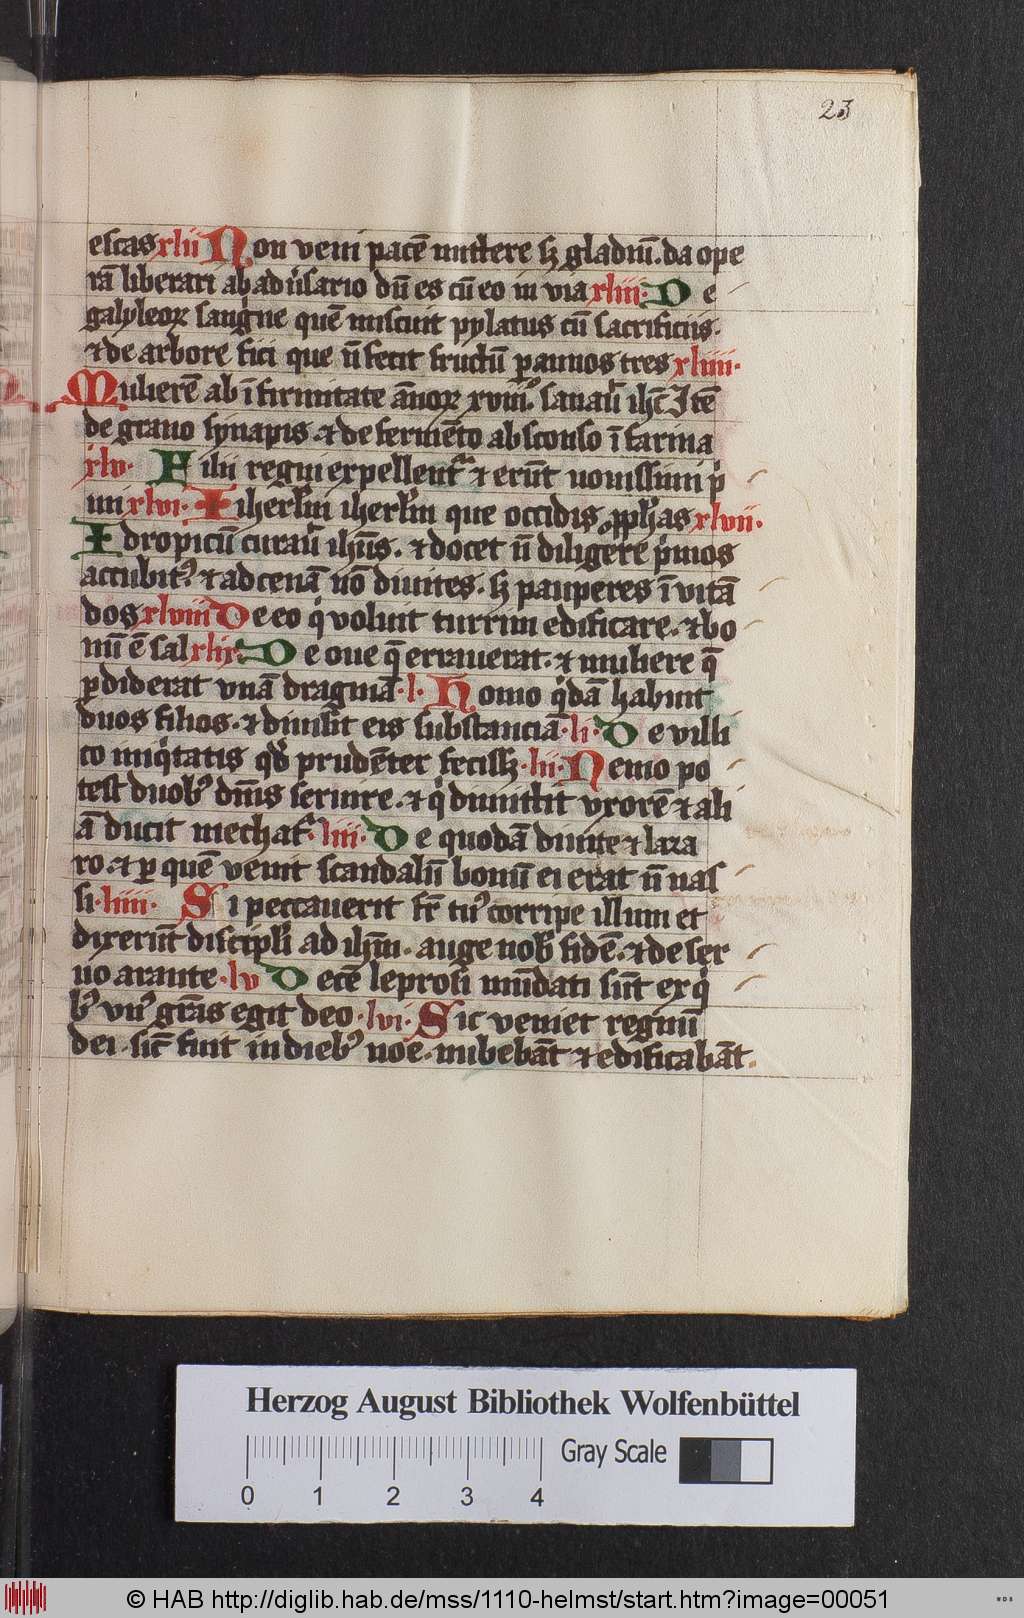 23
escas xlii Non veni pacē mittere sꝫ gladiū. da ope
rā liberari ab adúsario dū es cū eo in via xliii· De
galyleoꝝ sangⁱne quē miscuit pylatus cū sacrificiis.
⁊ de arbore fici que ñ fecit fructū ꝑ annos tres xliiii·
Mulierē ab īfirmitate ānoꝝ xviii. sanaū ihc̄ Itē
de grano synapis. ⁊ de fermēto absconso ī farina
xlv· Filii regni expellent᷑ ⁊ erūt novissimi pⁱ
mi xlvi· Iiherlm̄ iherlm̄ que occidis ꝓph̄as xlvii·
Idropicū curaū ihūs. ⁊ docet ñ diligere pⁱmos
accubitꝰ ⁊ ad cenā nō divites. sꝫ pauperes ī vitā
dos xlviii De eo qⁱ voluit turrim edificare. ⁊ bo
nū ē sal xlix· De oue q̄ erraverat. ⁊ muliere q̄
ꝑdiderat vnā dragmā ·l· Homo qⁱdā habuit
duos filios. ⁊ diuisit eis substanciā ·li· De villi
co iniqⁱtatis qd̓ prudēter fecissꝫ ·lii· Nemo po
test duobꝰ dn̄is seruire. ⁊ qⁱ dimittit vxorē ⁊ ali
ā ducit mechat᷑ liii· De quodā diuite ⁊ laza
ro. ⁊ ꝑ quē venit scandalū bonū ei erat ñ nas
si ·liiii· Si peccaverit fr̄ tuꝰ corripe illum et
dixerūt discipli ad ihm̄. auge nob̓ fidē. ⁊ de ser
uo arante ·lv Decē leprosi mūdati sūt ex qⁱ
bꝰ vnꝰ gr̄as egit deo ·lvi· Sic veniet regnū
dei. sic̄ fuit in diebꝰ noe. nubebāt ⁊ edificabāt.
Herzog August Bibliothek Wolfenbüttel
Gray Scale
0 1 2 3 4
© HAB http://diglib.hab.de/mss/1110-helmst/start.htm?image=00051